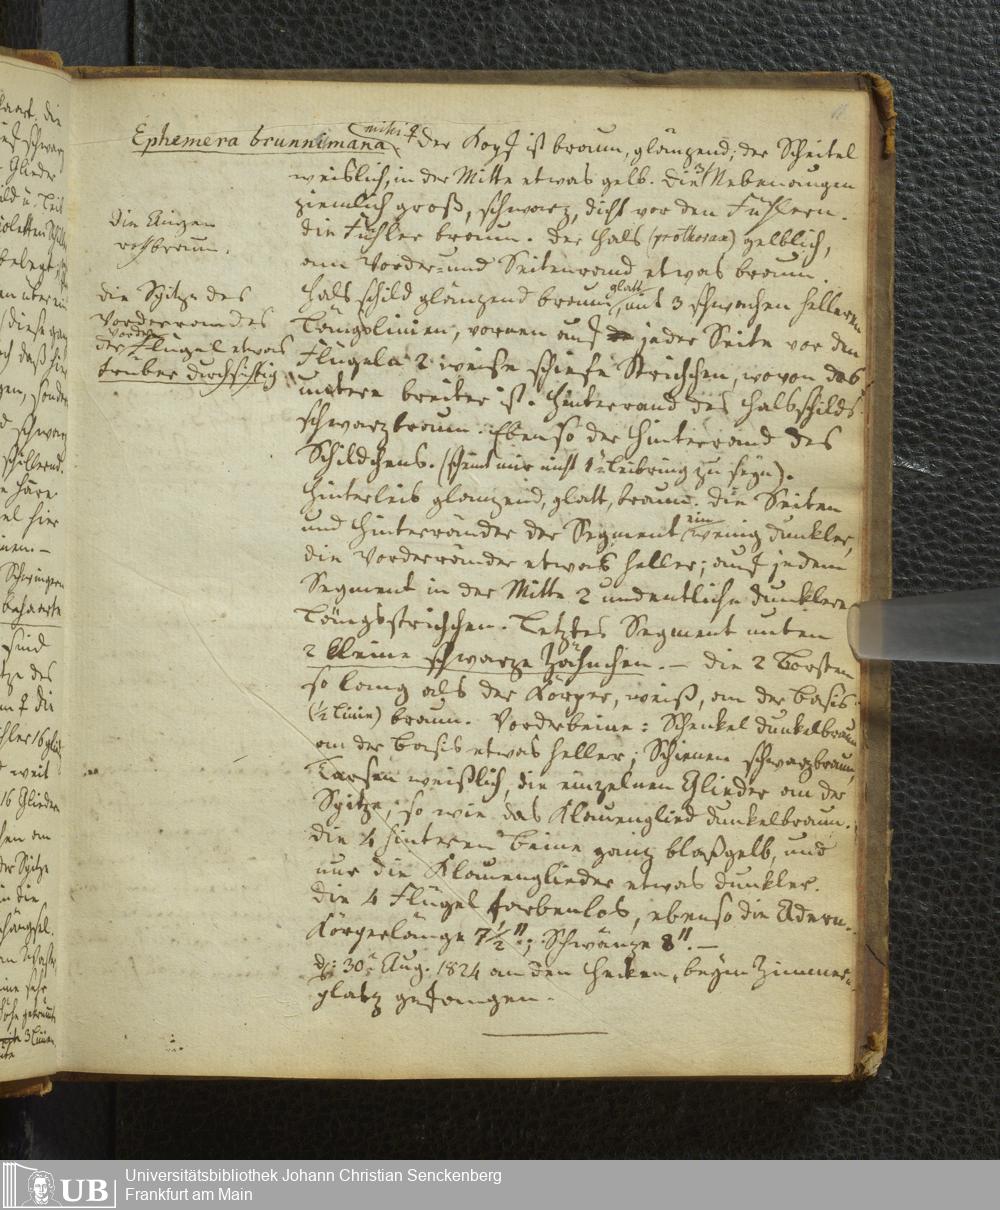 Ephemera brunnimana mihi ♀ Der Kopf ist braun, glänzend; der Scheitel
weislich, in der Mitte etwas gelb. Die 3 Nebenaugen
ziemlich groß, schwarz, dicht vor den Fühlern.
die Fühler braun. Der Hals (prothorax) gelblich,
am Vorder- und Seitenrand etwas braun.
Halsschild glänzend braun, glatt, mit 3 schwachen helleren
Längslinien, vornen auf jeder Seite vor den
Flügeln 2 weiße schiefe Strichchen, wovon das
untere breiter ist. Hinterrand des Halsschilds
schwarzbraun. Ebenso der Hinterrand des
Schildchens. (scheint mir nicht 1r Leibring zu seyn).
Hinterleib glänzend, glatt, braun. die Seiten
und Hinterränder der Segment ein wenig dunkler,
die Vorderränder etwas heller; auf jedem
Segment in der Mitte 2 undeutliche dunklere
Längsstrichchen. Letztes Segment unten
2 kleine schwarze Zähnchen. – Die 2 Borsten
so lang als der Körper, weiß, an der Basis
(½ Linie) braun. Vorderbeine: Schenkel dunkelbraun
an der Basis etwas heller; Schienen schwarzbraun,
Tarsen weißlich, die einzelnen Glieder an der
Spitze, so wie das Klauenglied dunkelbraun.
die 4 hinteren Beine ganz blaßgelb, und
nur die Klauenglieder etwas dunkler.
Die 4 Flügel farbenlos, ebenso die Adern.
Körperlänge 7½'''; Schwänze 8'''. –
d: 30n Aug. 1824 an den Hecken, beym Zimmer-
platz gefangen.
Die Augen
rothbraun.
die Spitze des
Vorderrandes
der vordern Flügel etwas
trüber durchsichtig
Universitätsbibliothek Johann Christian Senckenberg
Frankfurt am Main
UB